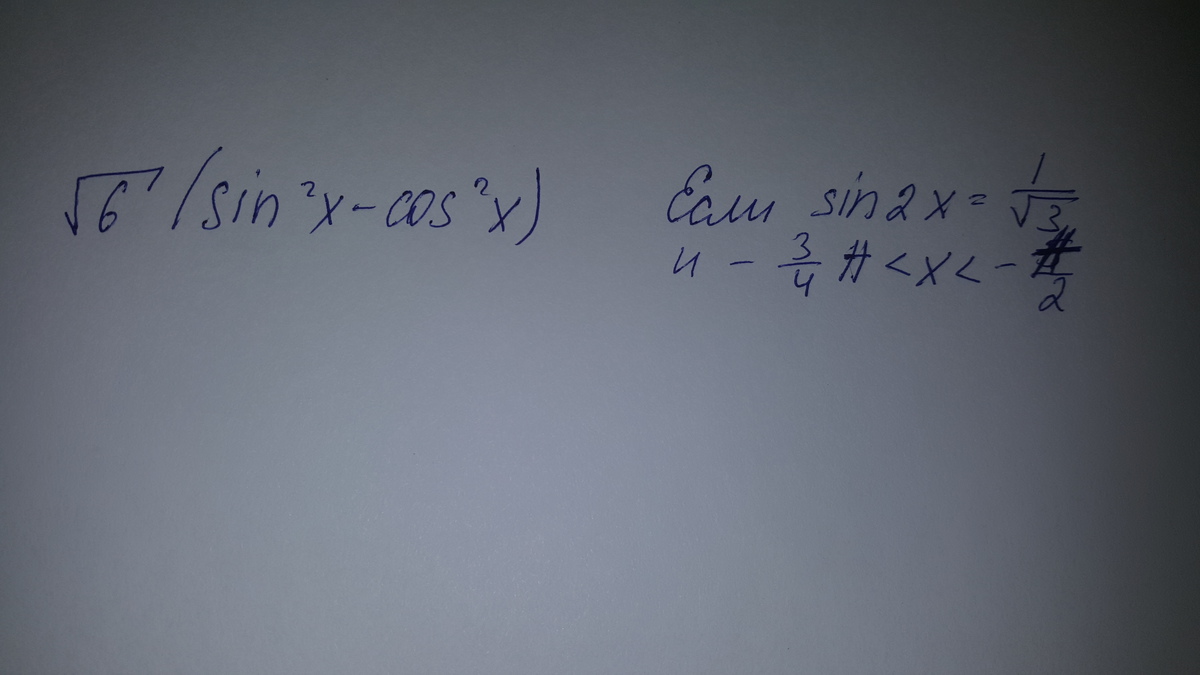 √6 (sin²x - cos²x)
Если sin2x = 1/√3
и - 3/4 π < x < - π/2